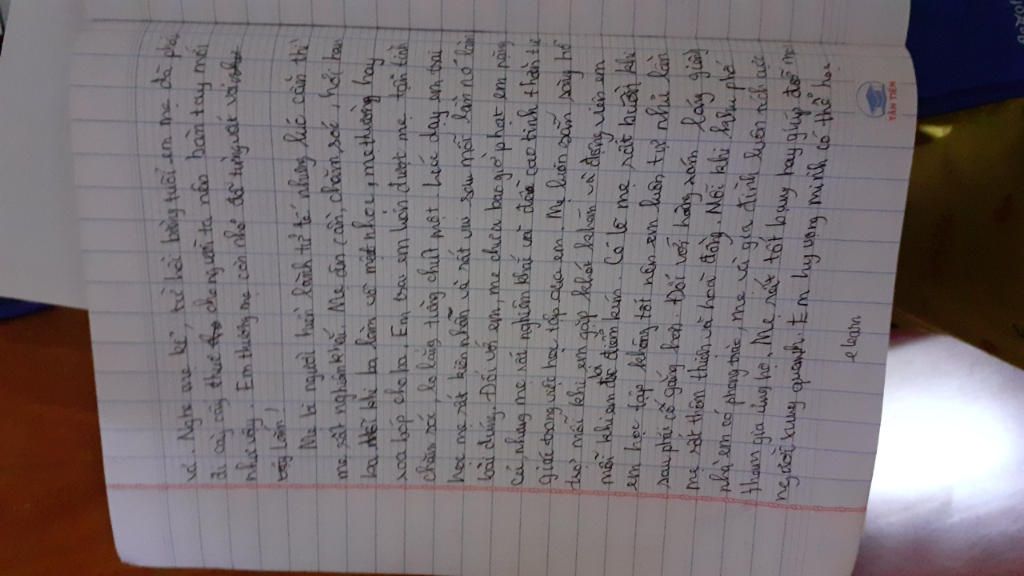 vả. Nghe mẹ kể, từ hồi bằng tuổi em mẹ đã phải
đi cày cấy thuê cho người ta nên bàn tay mới
như vậy. Em thương mẹ còn nhỏ đã từng vất vả
lắm!
Mẹ là người hiền lành tử tế nhưng lúc cần thì
mẹ rất nghiêm khắc. Mẹ ân cần, chăm sóc, hỏi han
ba khi ba làm về mệt nhọc, mẹ thường hay
xoa bóp cho ba. Em trai em luôn được mẹ tận tình
chăm sóc, lo lắng từng chút một. Lúc dạy em trai
học mẹ rất kiên nhẫn và rất vui sau mỗi lần nó làm
bài đúng. Đối với em, mẹ chưa bao giờ phạt em nặng
cả nhưng mẹ rất nghiêm khắc và đề cao tính thần tự
giác trong việc học tập của em. Mẹ luôn sẵn sàng hỗ
trợ mỗi khi em gặp khó khăn và động viên em
mỗi khi em bị điểm kém. Có lẽ mẹ rất buồn khi
em học tập không tốt nên em luôn tự nhủ lần
sau phải cố gắng hơn. Đối với hàng xóm láng giềng
mẹ rất thân thiện và hoà đồng. Mỗi khi khu phố
nhà em có phong trào, mẹ và gia đình luôn tích cực
tham gia ủng hộ. Mẹ rất tốt bụng hay giúp đỡ mọi
người xung quanh. Em hy vọng mình có thể học
TÂN TIẾN